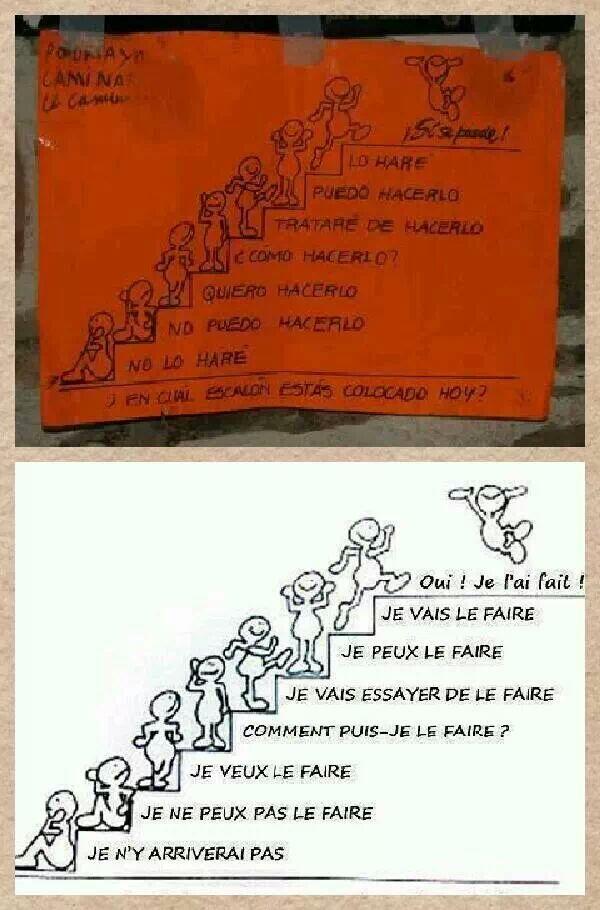 CAMINA
¡Sí se puede!
LO HARÉ
PUEDO HACERLO
TRATARÉ DE HACERLO
¿CÓMO HACERLO?
QUIERO HACERLO
NO PUEDO HACERLO
NO LO HARÉ
¿EN CUÁL ESCALÓN ESTÁS COLOCADO HOY?
Oui ! Je l'ai fait !
JE VAIS LE FAIRE
JE PEUX LE FAIRE
JE VAIS ESSAYER DE LE FAIRE
COMMENT PUIS-JE LE FAIRE ?
JE VEUX LE FAIRE
JE NE PEUX PAS LE FAIRE
JE N'Y ARRIVERAI PAS